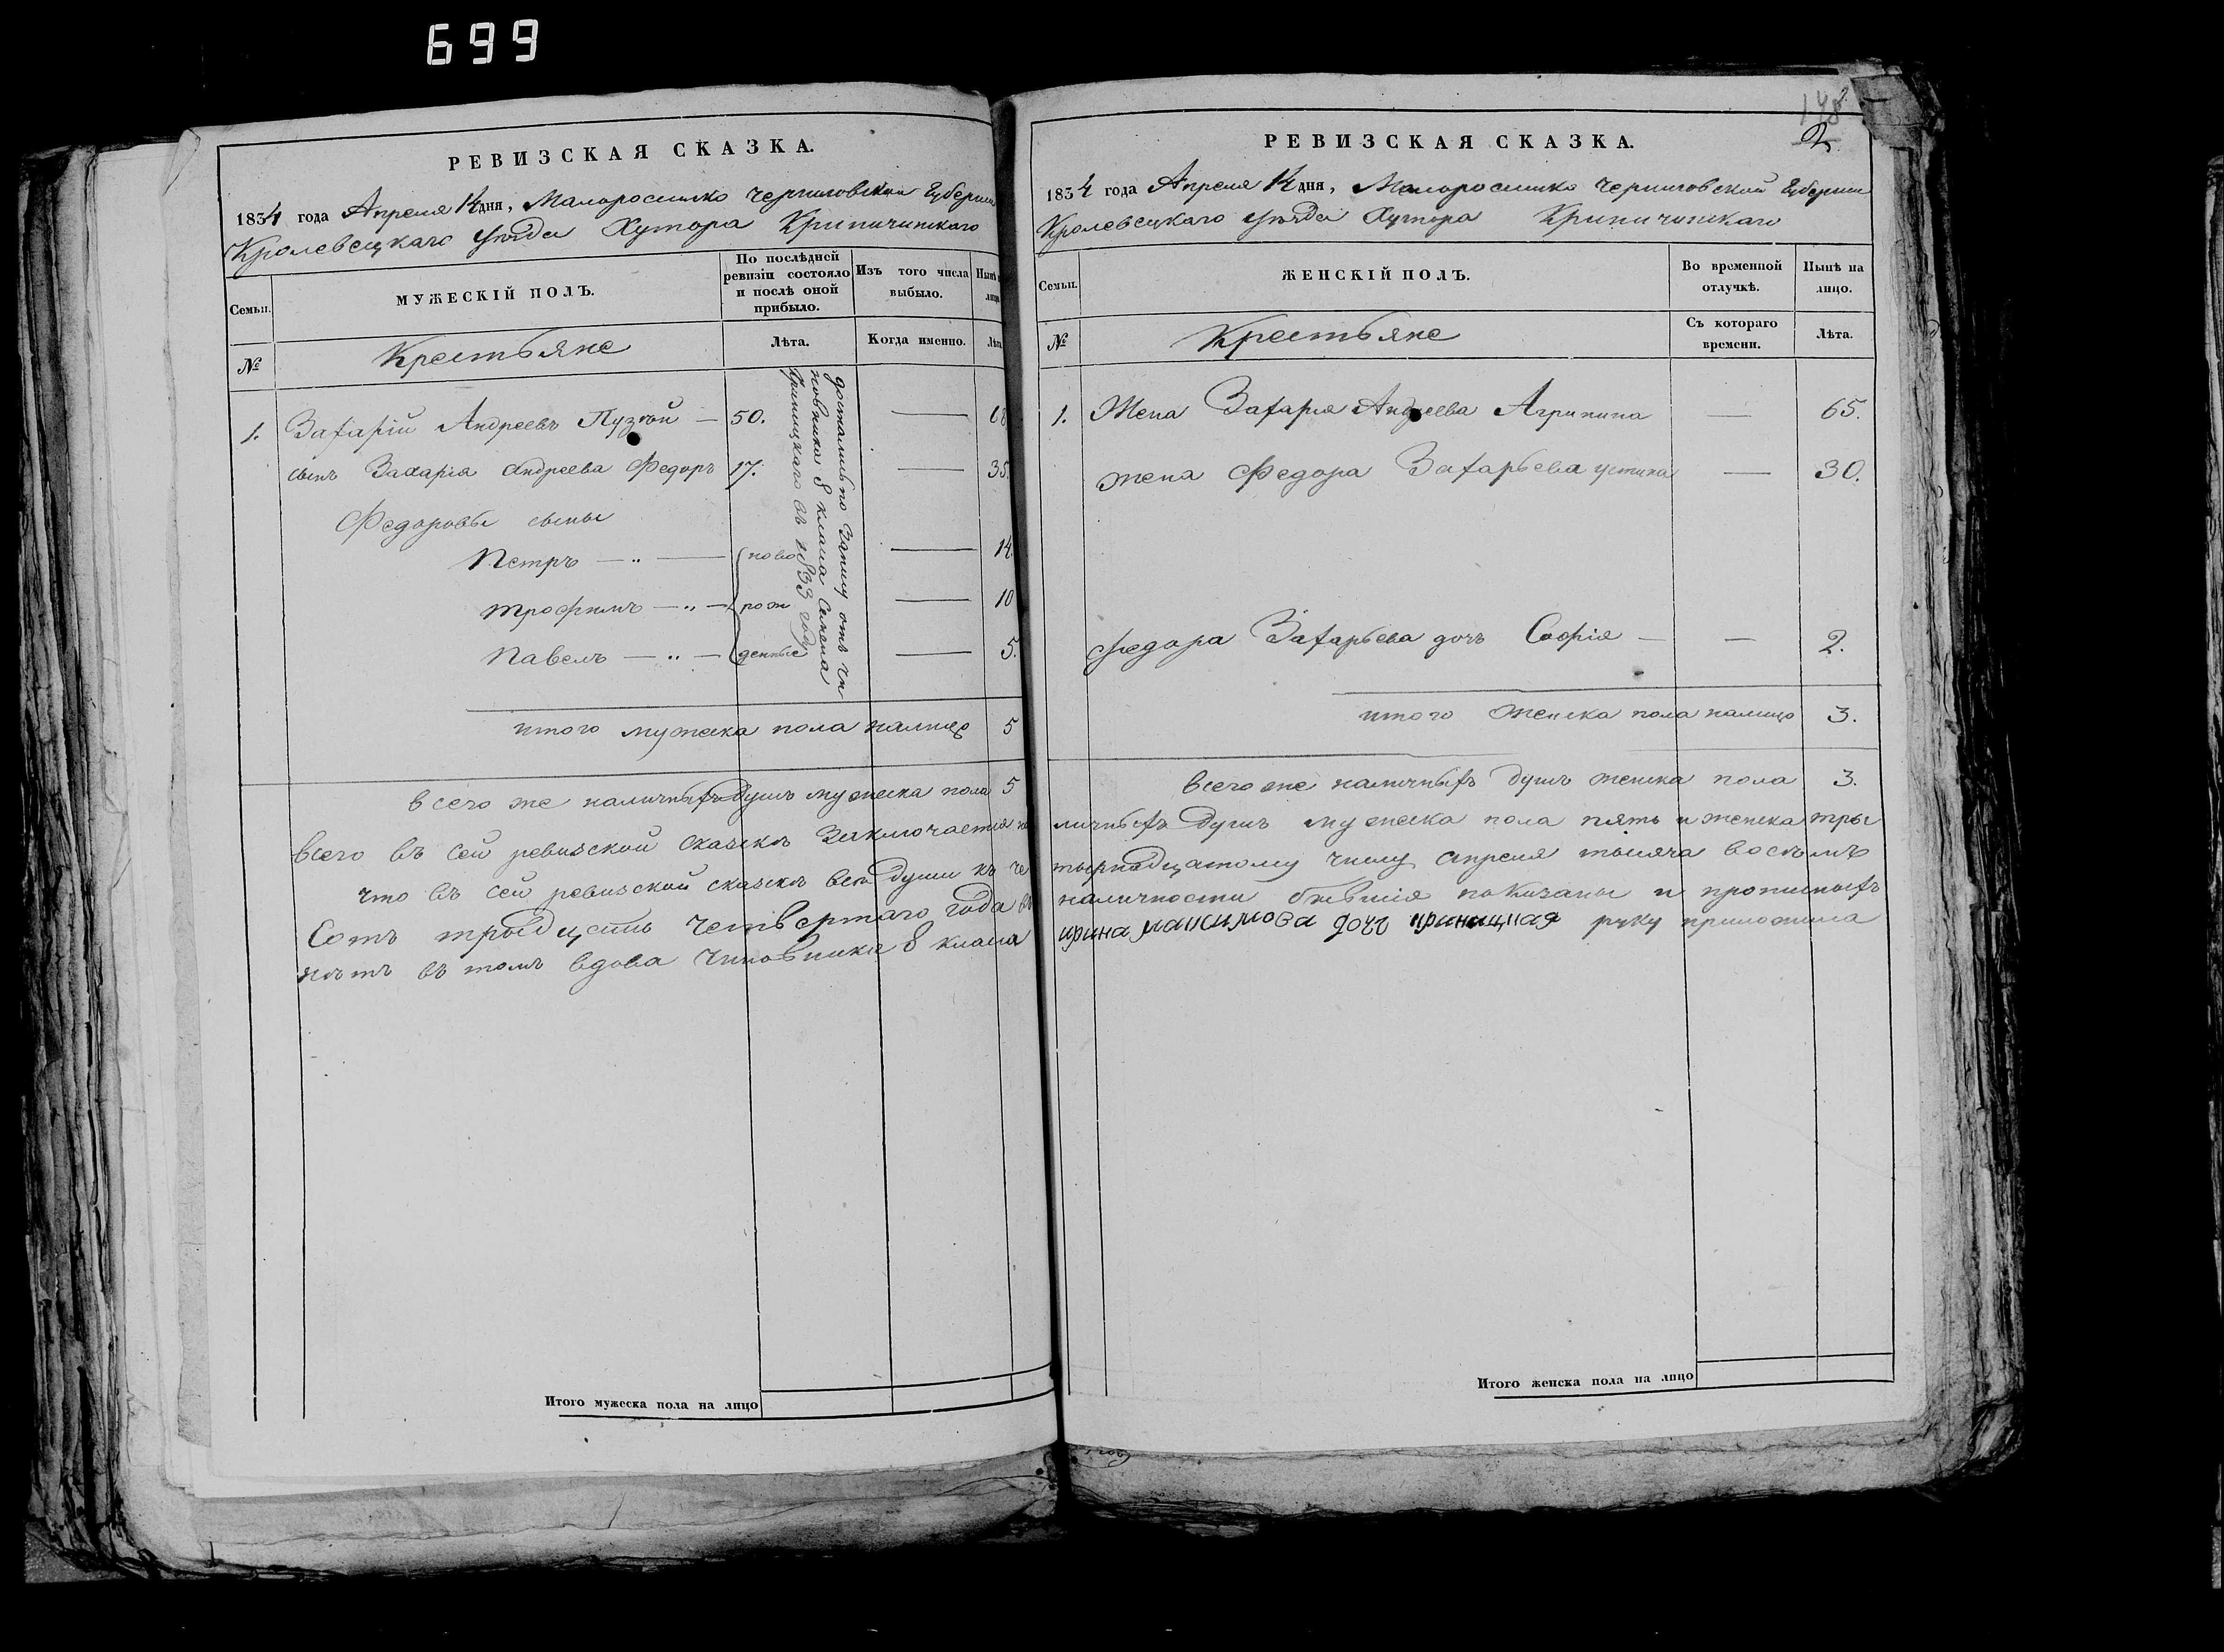 699
РЕВИЗСКАЯ СКАЗКА.
1834 года Апреля 14 дня, Малоросийско Черниговской Губернии
Кролевецкаго уезда Хутора
Семьи.
МУЖЕСКІЙ ПОЛЪ.
По послѣдней ревизіи состояло и послѣ оной прибыло.
Изъ того числа выбыло.
Нынѣ на лицо.
№
Крестьяне
Лѣта.
Когда именно.
Лѣта.
1. Захарій Андреевъ — 50. — 68.
сынъ Захарія Андреева Федоръ 17. — 35.
Федоровы сыны
Петръ — „ — ново — 14.
трофимъ — „ — рож — 10
Павелъ — „ — денные — 5.
достались по Запису отъ чи
новника 8 класса Семена
въ 1833 году
итого мужеска пола налицо 5
всего же наличныхъ душъ мужеска пола 5
всего въ сей ревизской сказкѣ заключается на
что въ сей ревизской сказкѣ все души къ че
Сотъ тридцать четвертаго года въ
нѣтъ въ томъ вдова Чиновника 8 класса
Итого мужеска пола на лицо
148
2
РЕВИЗСКАЯ СКАЗКА.
1834 года Апреля 14 дня, Малоросийско Черниговской Губернии
Кролевецкаго уезда Хутора
Семьи.
ЖЕНСКІЙ ПОЛЪ.
Во временной отлучкѣ.
Нынѣ на лицо.
№
Крестьяне
Съ котораго времени.
Лѣта.
1. Жена Захария Андреева Агрипина — 65.
жена Федора Захарьева устина — 30.
Федора Захарьева дочь Софія — — 2.
итого женска пола налицо 3.
всего же наличныхъ душъ женска пола 3.
личныхъ душъ мужеска пола пять и женска тры
тырнадцатому числу апреля тысяча восемъ
наличности бывшія показаны и прописныхъ
ирина максимова дочь руку приложила
Итого женска пола на лицо